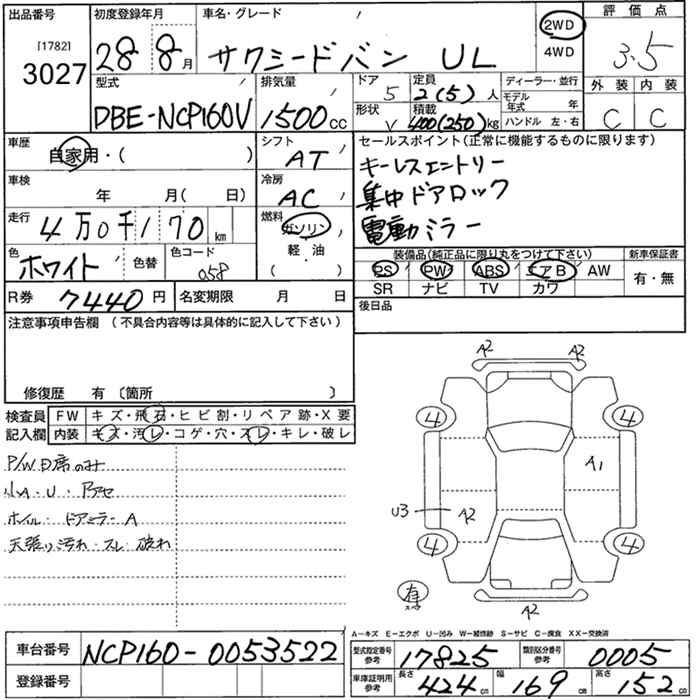 出品番号 初度登録年月 車名・グレード 評価点
[1782]
3027
28 8月 サクシードバン UL 2WD 4WD 3.5
型式 排気量 ドア 定員 ディーラー・並行 外装 内装
DBE-NCP160V 1500cc 5 2(5)人 モデル年式 年
形状 積載 ハンドル 左・右
V 400(250)kg C C
車歴 自家用・( ) シフト AT
セールスポイント(正常に機能するものに限ります)
キーレスエントリー
集中ドアロック
電動ミラー
車検 年 月( 日) 冷房 AC
走行 4万0千170km 燃料 ガソリン
軽・油
( )
色 ホワイト 色替 色コード 058
装備品(純正品に限り丸をつけて下さい) 新車保証書
PS PW ABS エアB AW 有・無
SR ナビ TV カワ
R券 7440円 名変期限 月 日
後日品
注意事項申告欄(不具合内容等は具体的に記入して下さい)
修復歴 有〔箇所 〕
検査員 FW キズ・飛石・ヒビ割・リペア跡・X要
記入欄 内装 キズ・汚レ・コゲ・穴・スレ・キレ・破レ
P/W D席のみ
小A・U・Pアセ
ホイル・ドアミラーA
天張り汚れ・スレ 破れ
A2 A2
4 4
A1
U3 A2
4 4
A2 A2
A-キズ E-エクボ U-凹み W-補修跡 S-サビ C-腐食 XX-交換済
車台番号 NCP160-0053522
登録番号
型式指定番号 参考 17825 類別区分番号 参考 0005
車庫証明用 参考 長さ 424cm 幅 169cm 高さ 152cm